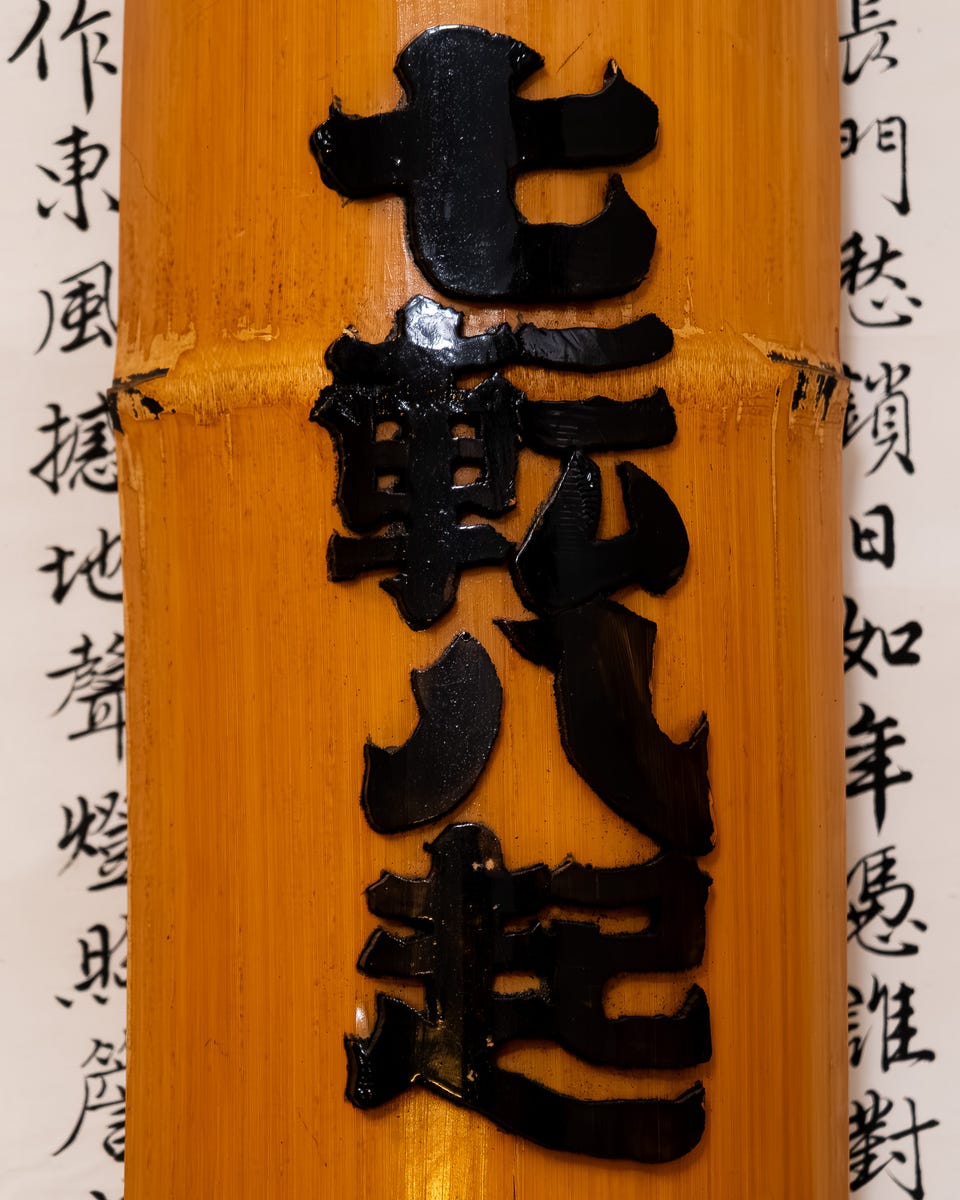 長門愁鎖日如年憑誰對
七転八起
作東風撼地聲燈照簷